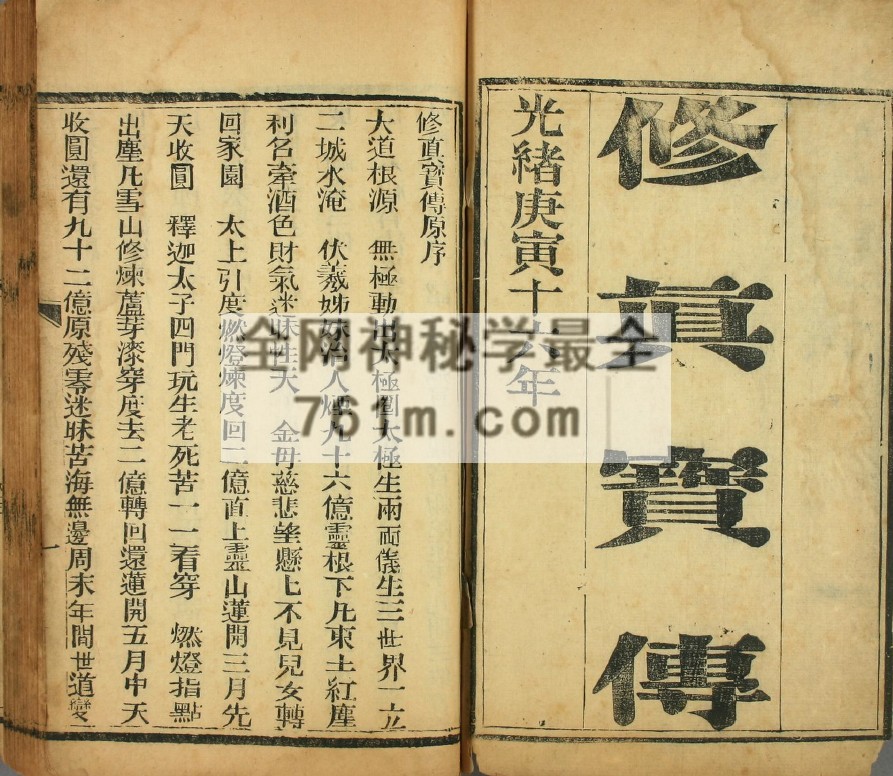 修真寶傳
光緒庚寅十六年
修真寶傳原序
大道根源 無極動出太極圖太極生兩而儀生三世界一立
二城水淹 伏羲姊妹治人煙九十六億靈根下凡東土紅塵
利名牽酒色財氣迷昧性天 金母慈悲望懸上不見兒女轉
回家園 太上引度燃燈煉度回二億直上靈山蓮開三月先
天收圓 釋迦太子四門玩生老死苦一一看穿 燃燈指點
出塵凡雪山修煉蘆芽漆穿度去二億轉回還蓮開五月中天
收圓還有九十二億原殘零迷昧苦海無邊周末年間世道變
一
全网神秘学最全
761m.com